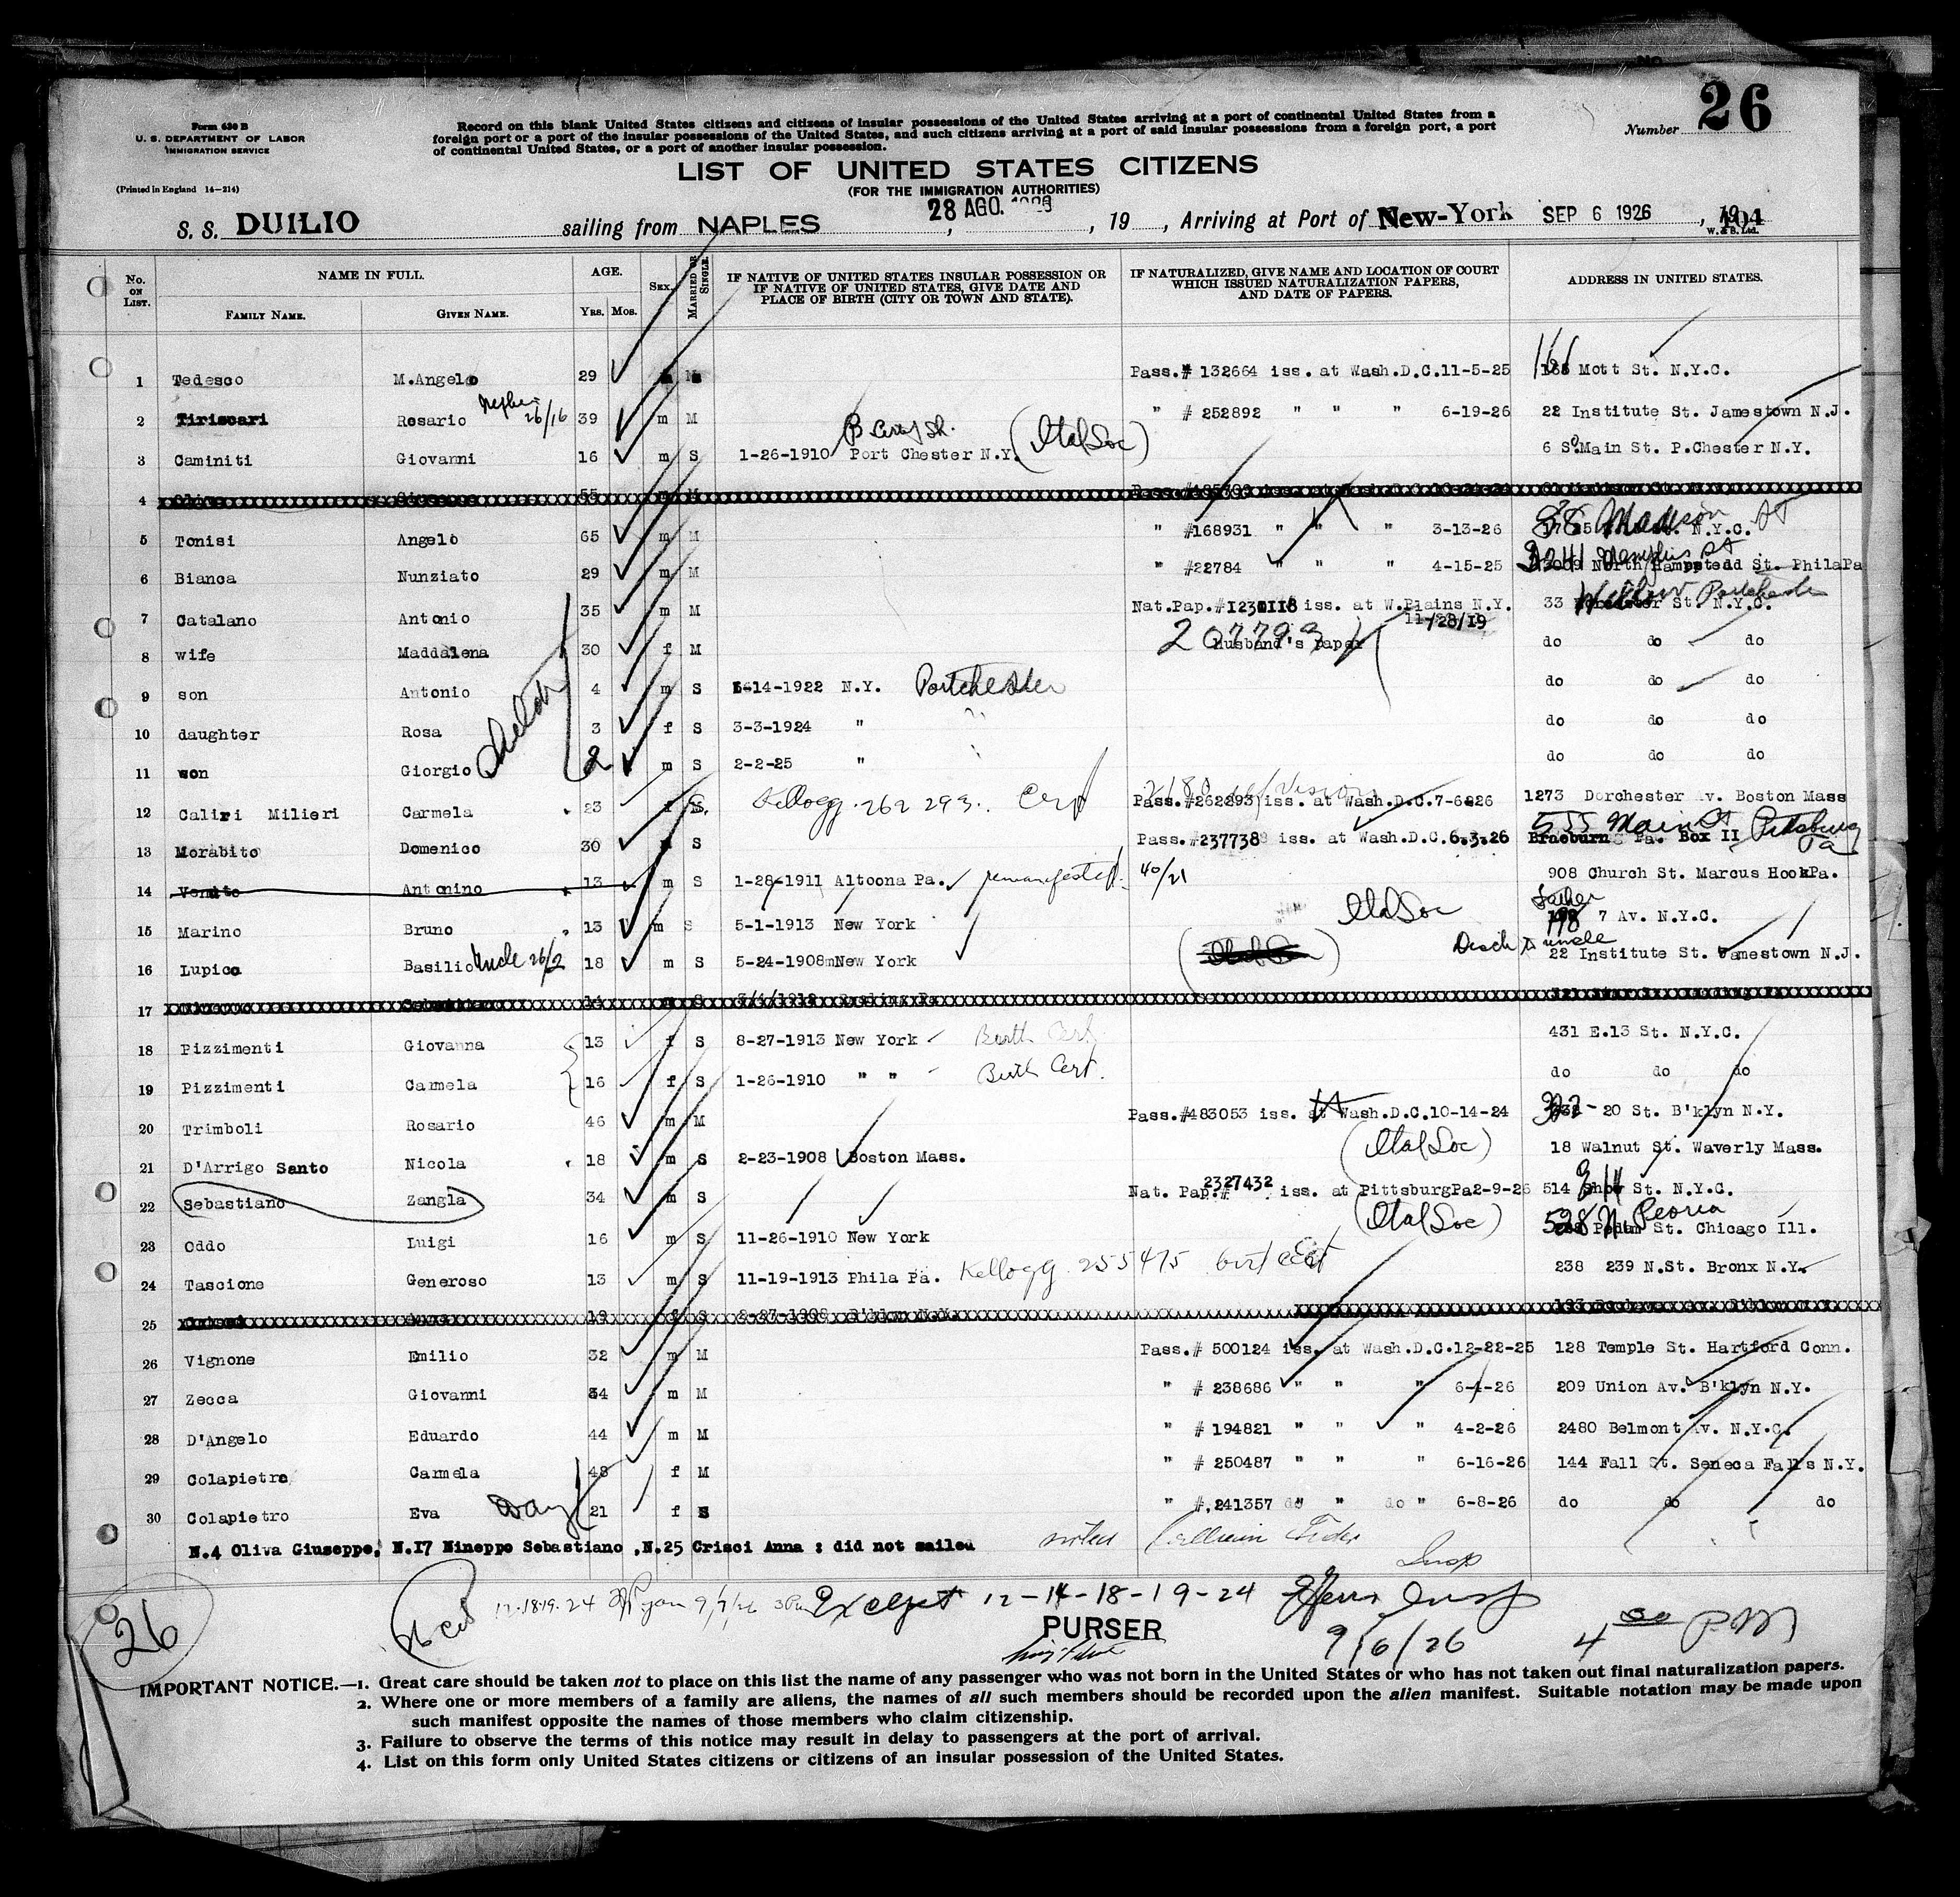 26
Number
Form 630 B
U. S. DEPARTMENT OF LABOR
IMMIGRATION SERVICE
(Printed in England 14-214)
Record on this blank United States citizens and citizens of insular possessions of the United States arriving at a port of continental United States from a
foreign port or a port of the insular possessions of the United States, and such citizens arriving at a port of said insular possessions from a foreign port, a port
of continental United States, or a port of another insular possession.
LIST OF UNITED STATES CITIZENS
(FOR THE IMMIGRATION AUTHORITIES)
S. S. DUILIO sailing from NAPLES, 28 AGO. 1926, 19, Arriving at Port of New-York SEP 6 1926, 19 104
W. & S. Ltd.
No. ON LIST. NAME IN FULL. AGE. SEX. MARRIED OR SINGLE. IF NATIVE OF UNITED STATES INSULAR POSSESSION OR IF NATIVE OF UNITED STATES, GIVE DATE AND PLACE OF BIRTH (CITY OR TOWN AND STATE). IF NATURALIZED, GIVE NAME AND LOCATION OF COURT WHICH ISSUED NATURALIZATION PAPERS, AND DATE OF PAPERS. ADDRESS IN UNITED STATES.
FAMILY NAME. GIVEN NAME. YRS. MOS.
1 Tedesco M.Angelo 29 Pass.# 132664 iss. at Wash.D.C.11-5-25 161 Mott St. N.Y.C.
2 Tiriscari Rosario Nephew 26/16 39 m M " # 252892 " " " 6-19-26 22 Institute St. Jamestown N.J.
3 Caminiti Giovanni 16 m S 1-26-1910 Port Chester N.Y. (Ital Soc) 6 S. Main St. P.Chester N.Y.
4 Oliva Giuseppe 55 m M
5 Tonisi Angelo 65 m M " #168931 " " " 3-13-26 38 Madison St N.Y.C.
6 Bianca Nunziato 29 m M " #22784 " " " 4-15-25 3241 Memphis St PhilaPa
7 Catalano Antonio 35 m M Nat.Pap.#1230118 iss. at W.Plains N.Y. 11/28/19 33 Willow Portchester
8 wife Maddalena 30 f M 207793 Husband's Paper do do do
9 son Antonio 4 m S 6-14-1922 N.Y. Portchester do do do
10 daughter Rosa 3 f S 3-3-1924 " " do do do
11 son Giorgio 2 m S 2-2-25 " do do do
12 Caliri Milieri Carmela 23 f S. Kellogg 262 293. Cert Pass.#262293 iss. at Wash.D.C.7-6-26 1273 Dorchester Av. Boston Mass
13 Morabito Domenico 30 S Pass.#237738 iss. at Wash.D.C.6.3.26 555 Main St Pittsburg Pa Braeburn Pa. Box II
14 Vomito Antonino 13 m S 1-28-1911 Altoona Pa. remanifested 40/21 908 Church St. Marcus HookPa.
15 Marino Bruno 13 m S 5-1-1913 New York Ital Soc Father 198 7 Av. N.Y.C.
16 Lupica Basilio Uncle 26/2 18 m S 5-24-1908 New York Disch to uncle 22 Institute St. Jamestown N.J.
17
18 Pizzimenti Giovanna 13 f S 8-27-1913 New York Birth Cert. 431 E.13 St. N.Y.C.
19 Pizzimenti Carmela 16 f S 1-26-1910 " " Birth Cert. do do do
20 Trimboli Rosario 46 m M Pass.#483053 iss. at Wash.D.C.10-14-24 20 St. B'klyn N.Y.
21 D'Arrigo Santo Nicola 18 m S 2-23-1908 Boston Mass. (Ital Soc) 18 Walnut St. Waverly Mass.
22 Sebastiano Zangla 34 m S Nat. Pap.# 2327432 iss. at PittsburgPa2-9-26 514 St. N.Y.C.
23 Oddo Luigi 16 m S 11-26-1910 New York (Ital Soc) 528 N. Peoria St. Chicago Ill.
24 Tascione Generoso 13 m S 11-19-1913 Phila Pa. Kellogg 255475 birt cert 238 239 N.St. Bronx N.Y.
25
26 Vignone Emilio 32 m M Pass.# 500124 iss. at Wash.D.C.12-22-25 128 Temple St. Hartford Conn.
27 Zecca Giovanni 34 m M " # 238686 " " " 6-4-26 209 Union Av. B'klyn N.Y.
28 D'Angelo Eduardo 44 m M " # 194821 " " " 4-2-26 2480 Belmont Av. N.Y.C.
29 Colapietro Carmela 48 f M " # 250487 " " " 6-16-26 144 Fall St. Seneca Falls N.Y.
30 Colapietro Eva 21 f S " #.241357 " do " 6-8-26 do do do
N.4 Oliva Giuseppe, N.17 Nineppo Sebastiano ,N.25 Crisci Anna : did not sailed
noted Insp
26
12-18-19-24 Ryan 9/7/26 Except 12-14-18-19-24 Insp
PURSER
9/6/26 4 30 PM
IMPORTANT NOTICE.—1. Great care should be taken not to place on this list the name of any passenger who was not born in the United States or who has not taken out final naturalization papers.
2. Where one or more members of a family are aliens, the names of all such members should be recorded upon the alien manifest. Suitable notation may be made upon
such manifest opposite the names of those members who claim citizenship.
3. Failure to observe the terms of this notice may result in delay to passengers at the port of arrival.
4. List on this form only United States citizens or citizens of an insular possession of the United States.